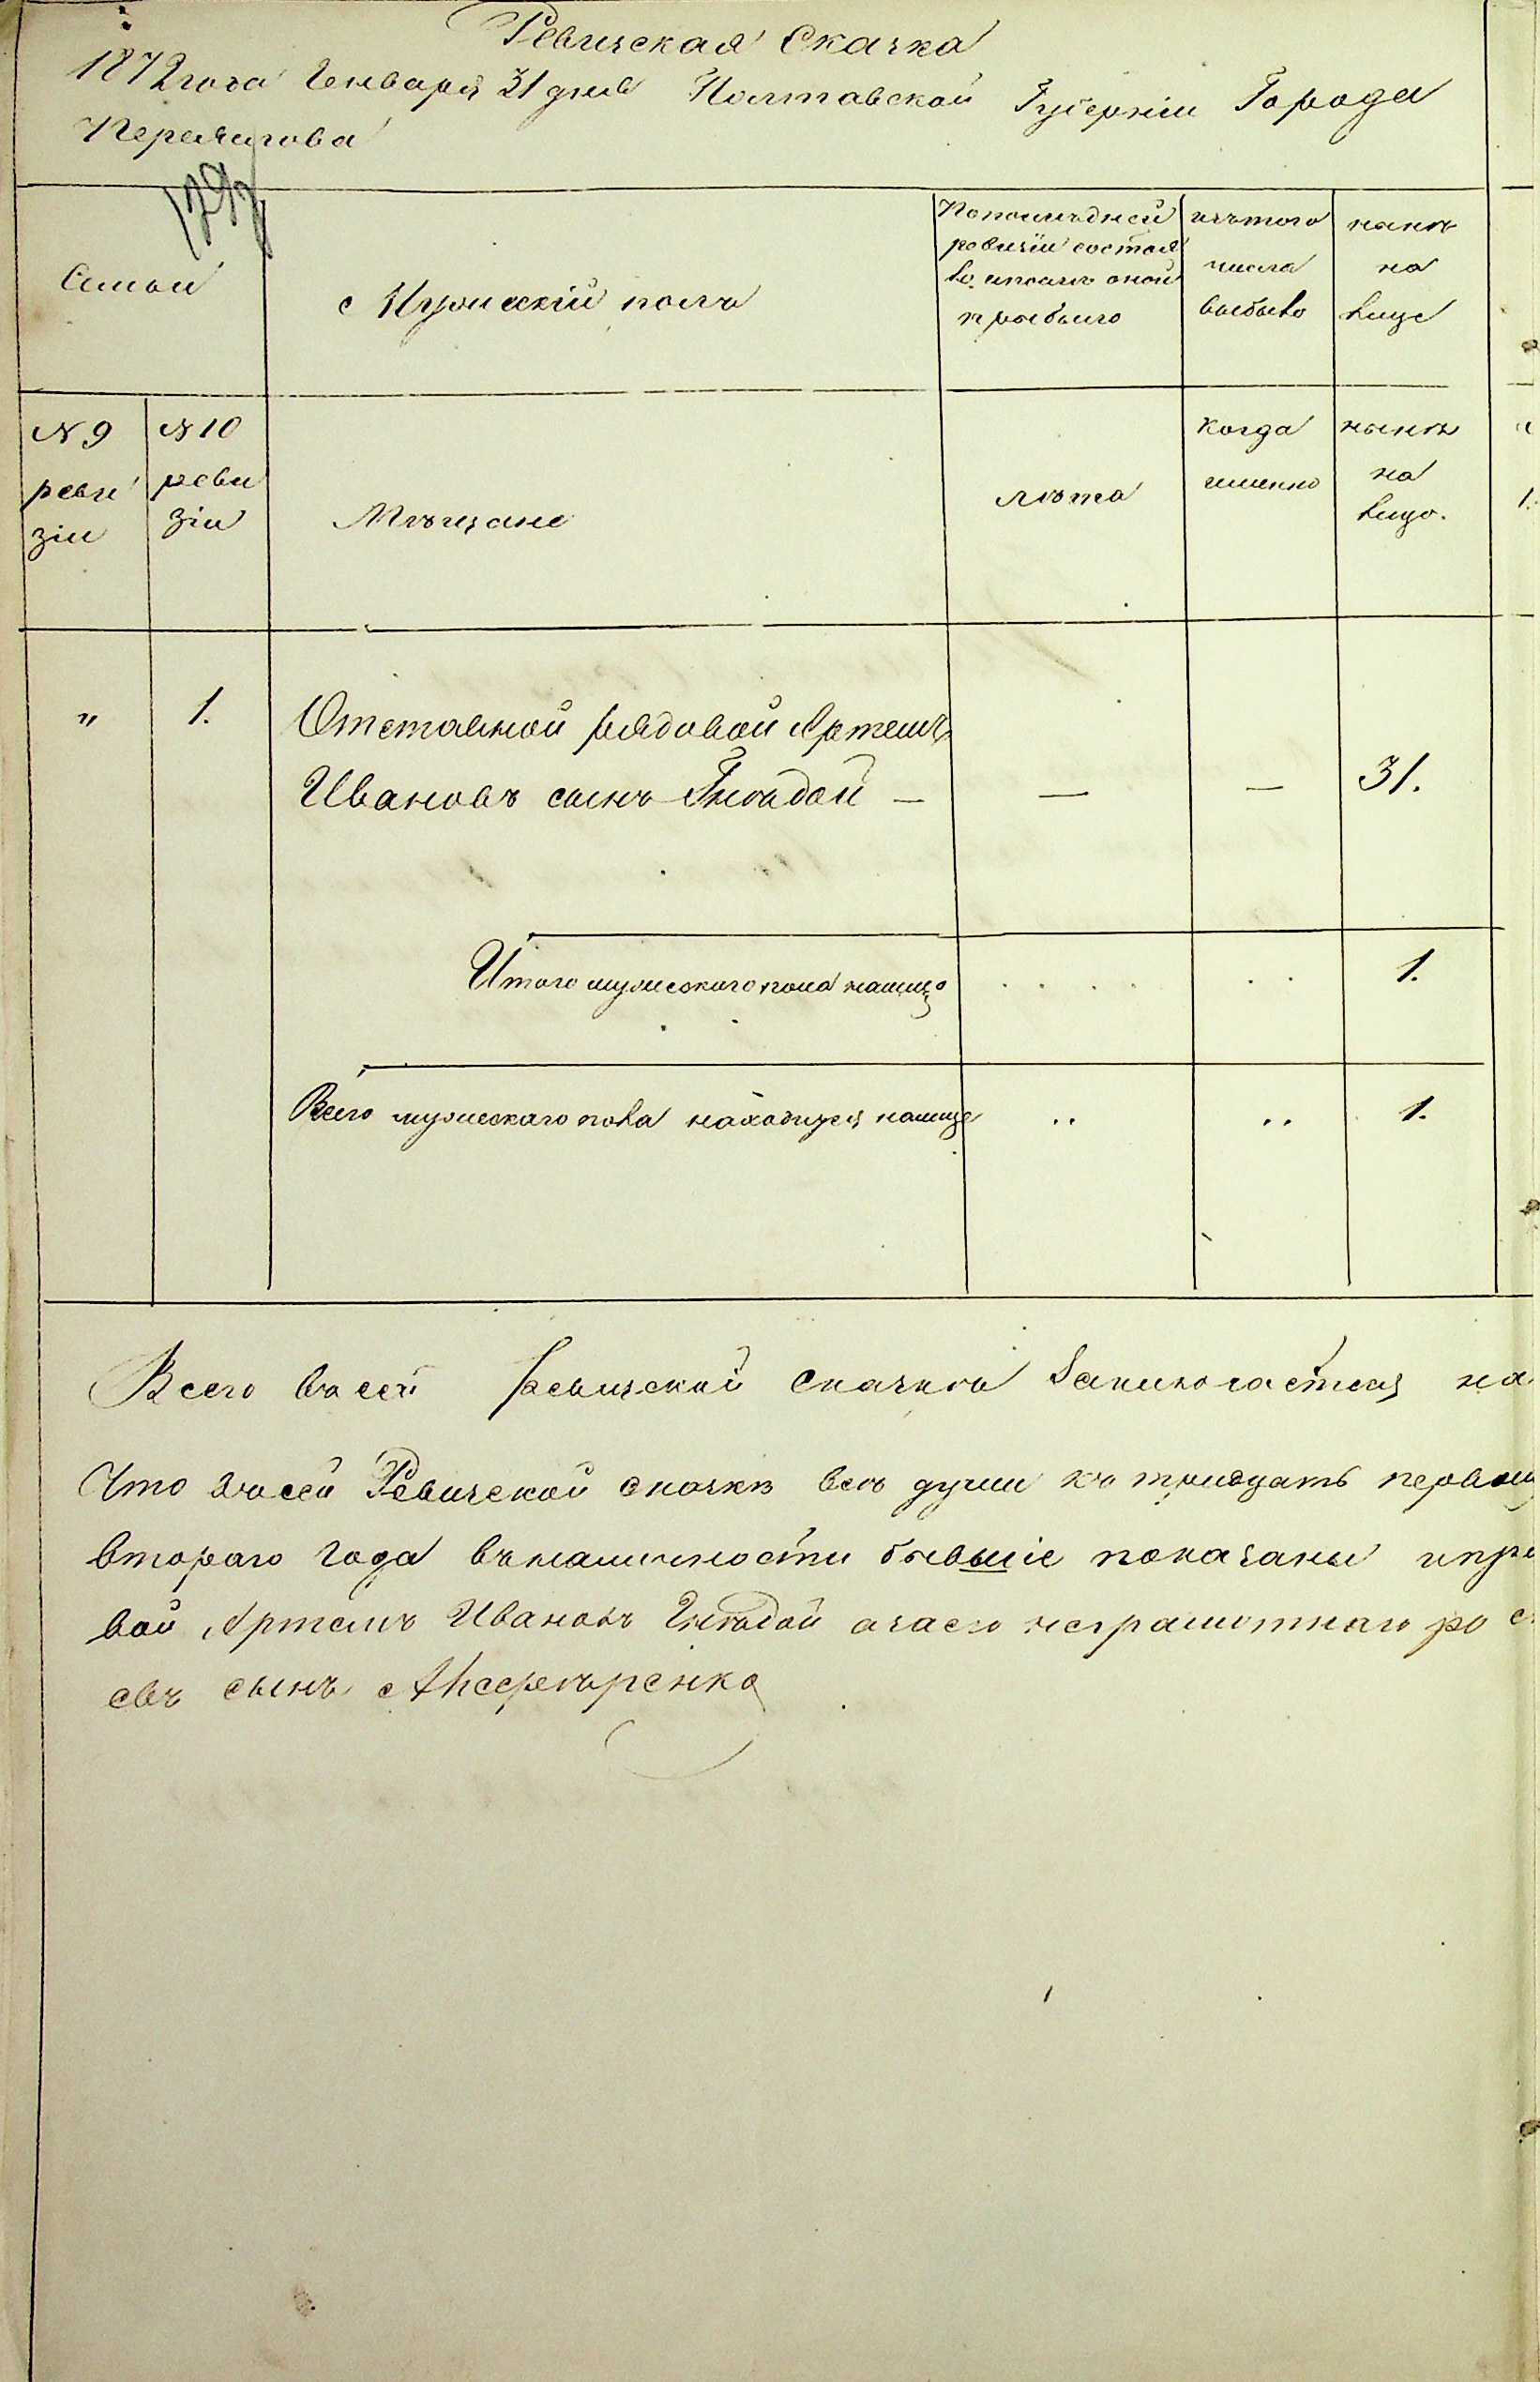 Ревизская Сказка
1872 года Генваря 31 дня Полтавской Губерніи Города
Переяслова
Семьи
Мужескій полъ
По послѣдней ревизіи состоя
ло и послѣ оной прибыло
изъ того числа выбыло
нынѣ на лице
№ 9 реви зіи
№ 10 реви зіи
Мѣщане
лѣта
когда именно
нынѣ на лицо.
" 1. Отставной рядовой Артемъ
Ивановъ сынъ Гнѣдой — — — 31.
Итого мужескаго пола налицо . . . . . . 1.
Всего мужескаго пола находится налице .. .. 1.
Всего въ сей Ревизской Сказкѣ Заключается на
Что въ сей Ревизской сказкѣ всѣ души къ тридцать первому
втораго Года въ наличности бывшіе показаны и
вой Артемъ Ивановъ Гнѣдой а за его неграмотнаго
евъ сынъ